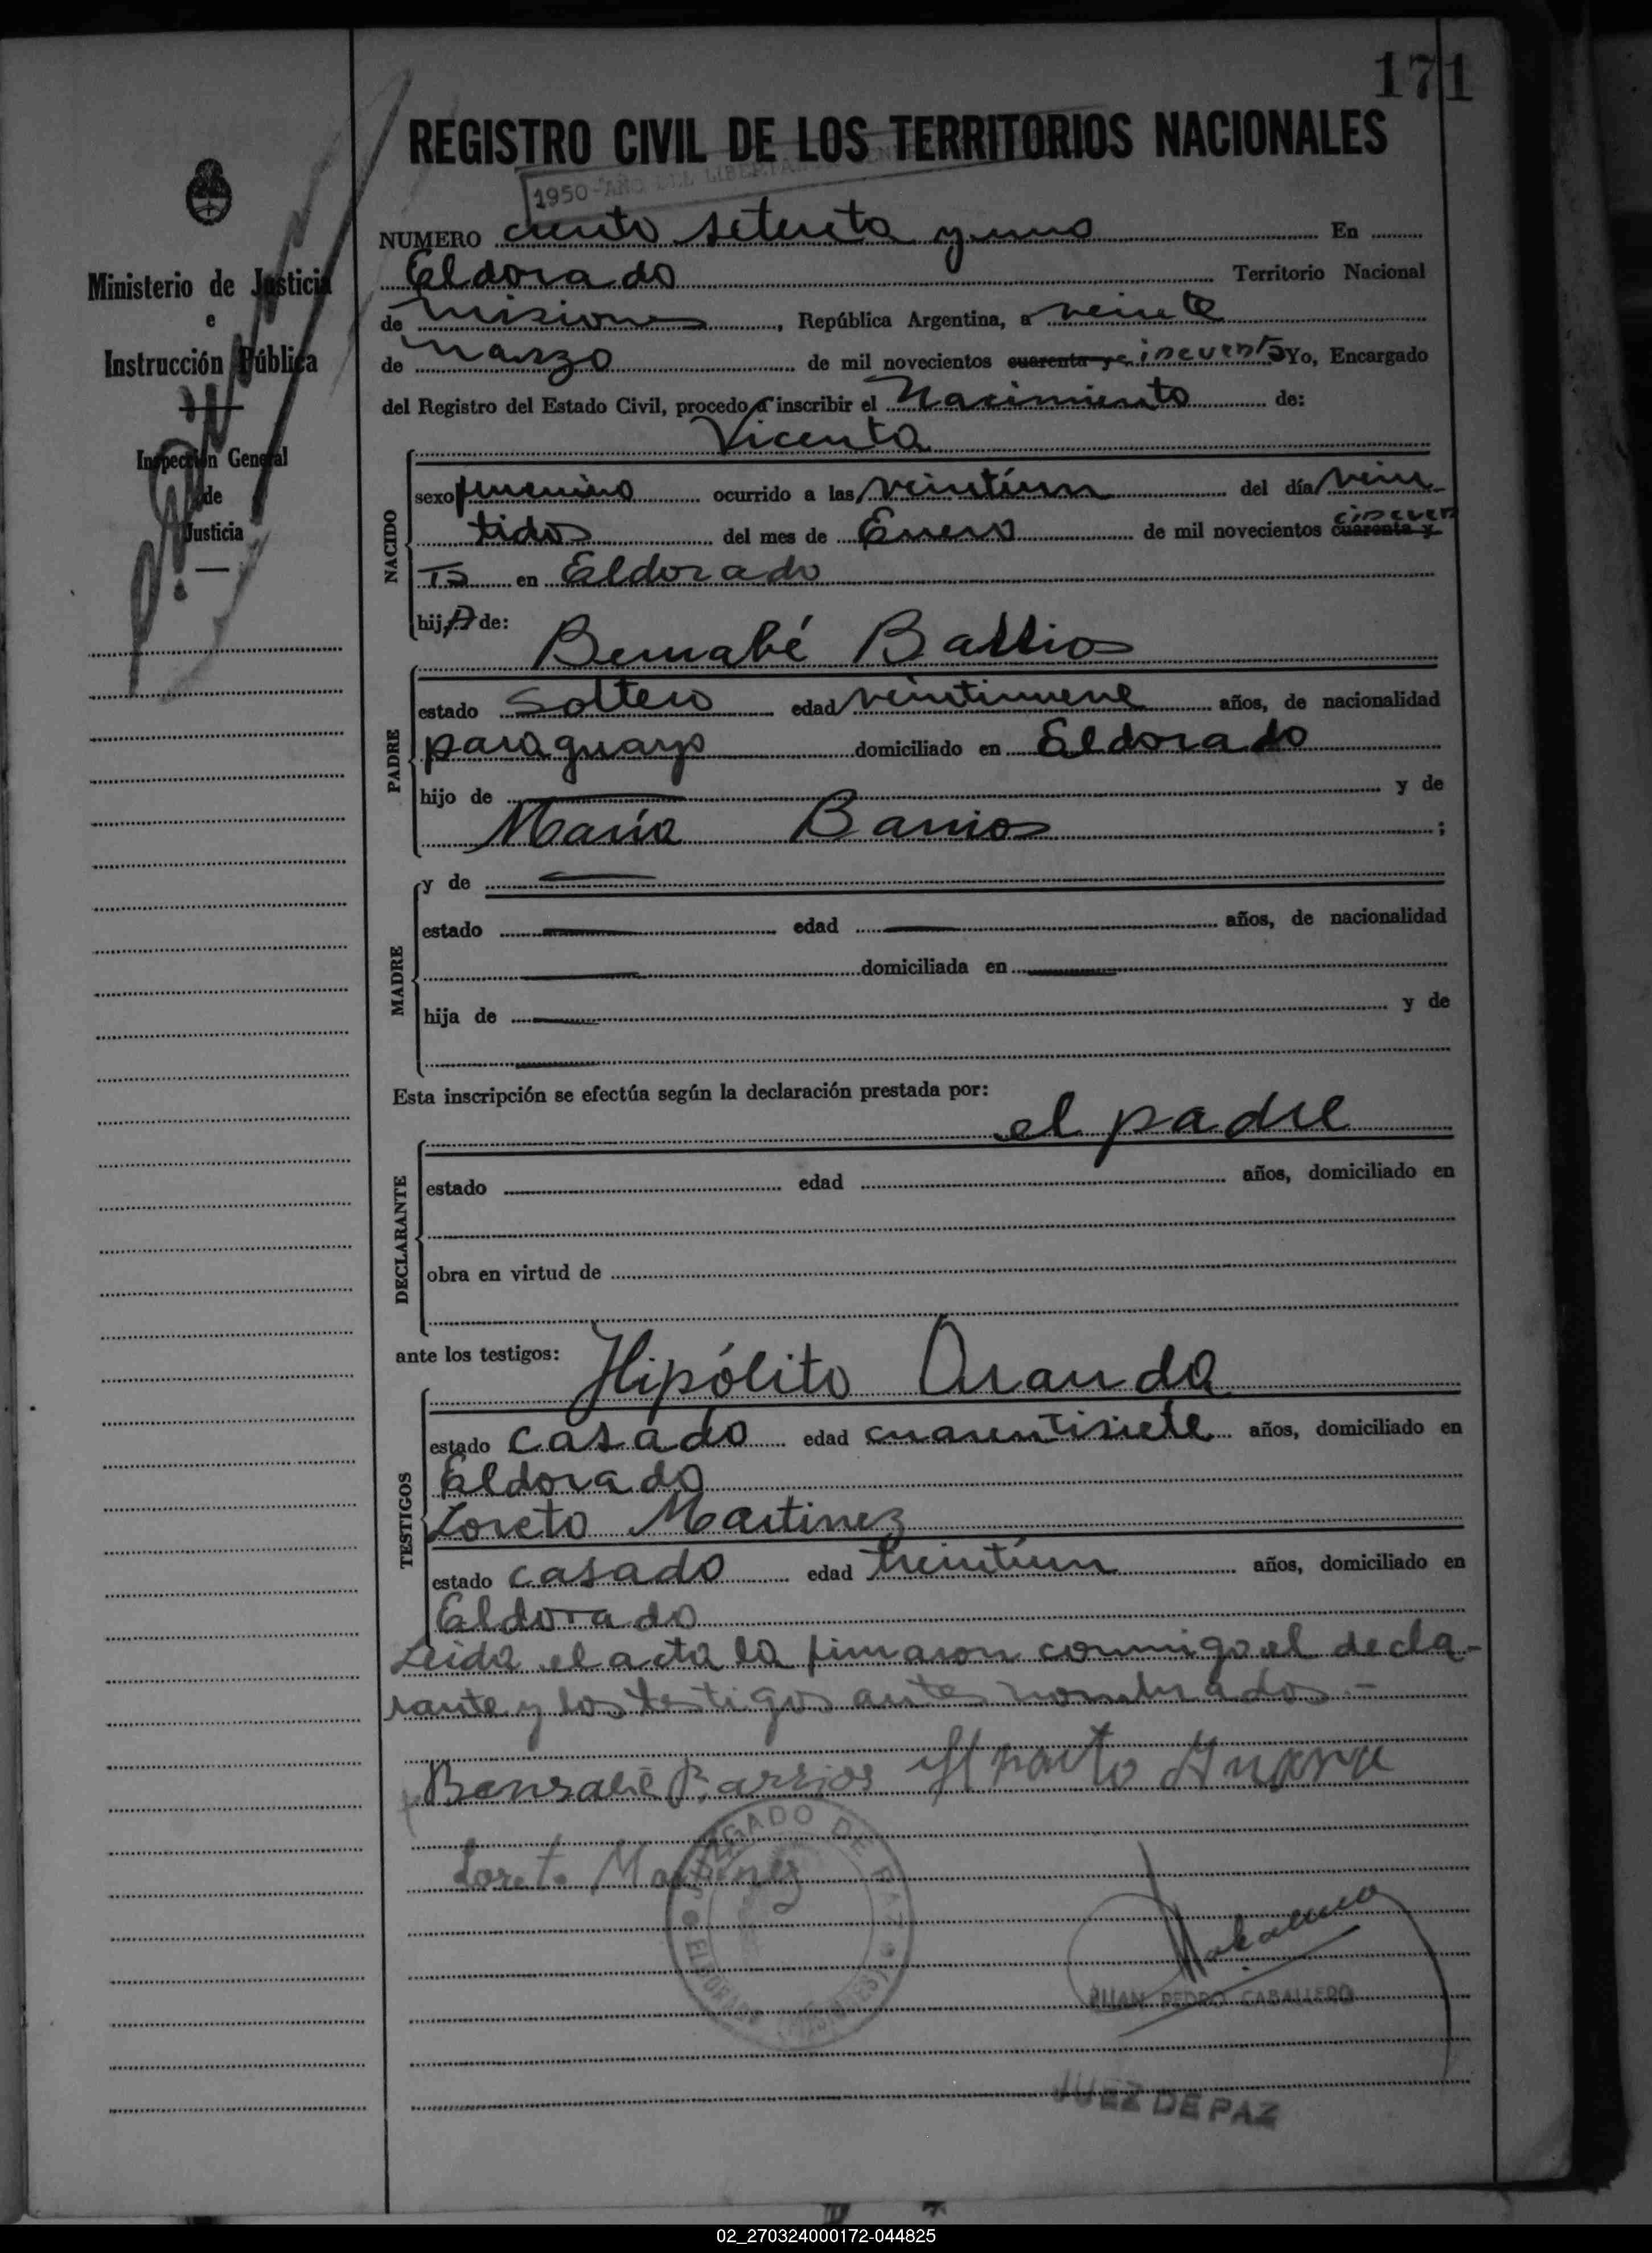 171
REGISTRO CIVIL DE LOS TERRITORIOS NACIONALES
1950-AÑO DEL LIBERTADOR
Ministerio de Justicia
e
Instrucción Pública
Inspección General
de
Justicia
NUMERO ciento setenta y uno En
Eldorado Territorio Nacional
de Misiones, República Argentina, a veinte
de marzo de mil novecientos cuarenta y cincuenta Yo, Encargado
del Registro del Estado Civil, procedo a inscribir el Nacimiento de:
Vicenta
NACIDO
sexo femenino ocurrido a las veintiun del día vein
tidos del mes de Enero de mil novecientos cuarenta y cincuen
ta en Eldorado
hija de:
Bernabé Barrios
PADRE
estado soltero edad veintinueve años, de nacionalidad
paraguayo domiciliado en Eldorado
hijo de y de
María Barrios ;
MADRE
y de
estado edad años, de nacionalidad
domiciliada en
hija de y de
Esta inscripción se efectúa según la declaración prestada por:
el padre
DECLARANTE
estado edad años, domiciliado en
obra en virtud de
ante los testigos:
Hipólito Aranda
TESTIGOS
estado casado edad cuarentisiete años, domiciliado en
Eldorado
Loreto Martinez
estado casado edad treintiun años, domiciliado en
Eldorado
Leida el acta la firmaron conmigo el decla-
rante y los testigos antes nombrados.-
Bernabé Barrios
Loreto Martinez
JUZGADO DE PAZ
ELDORADO
JUAN PEDRO CABALLERO
JUEZ DE PAZ
02_270324000172-044825